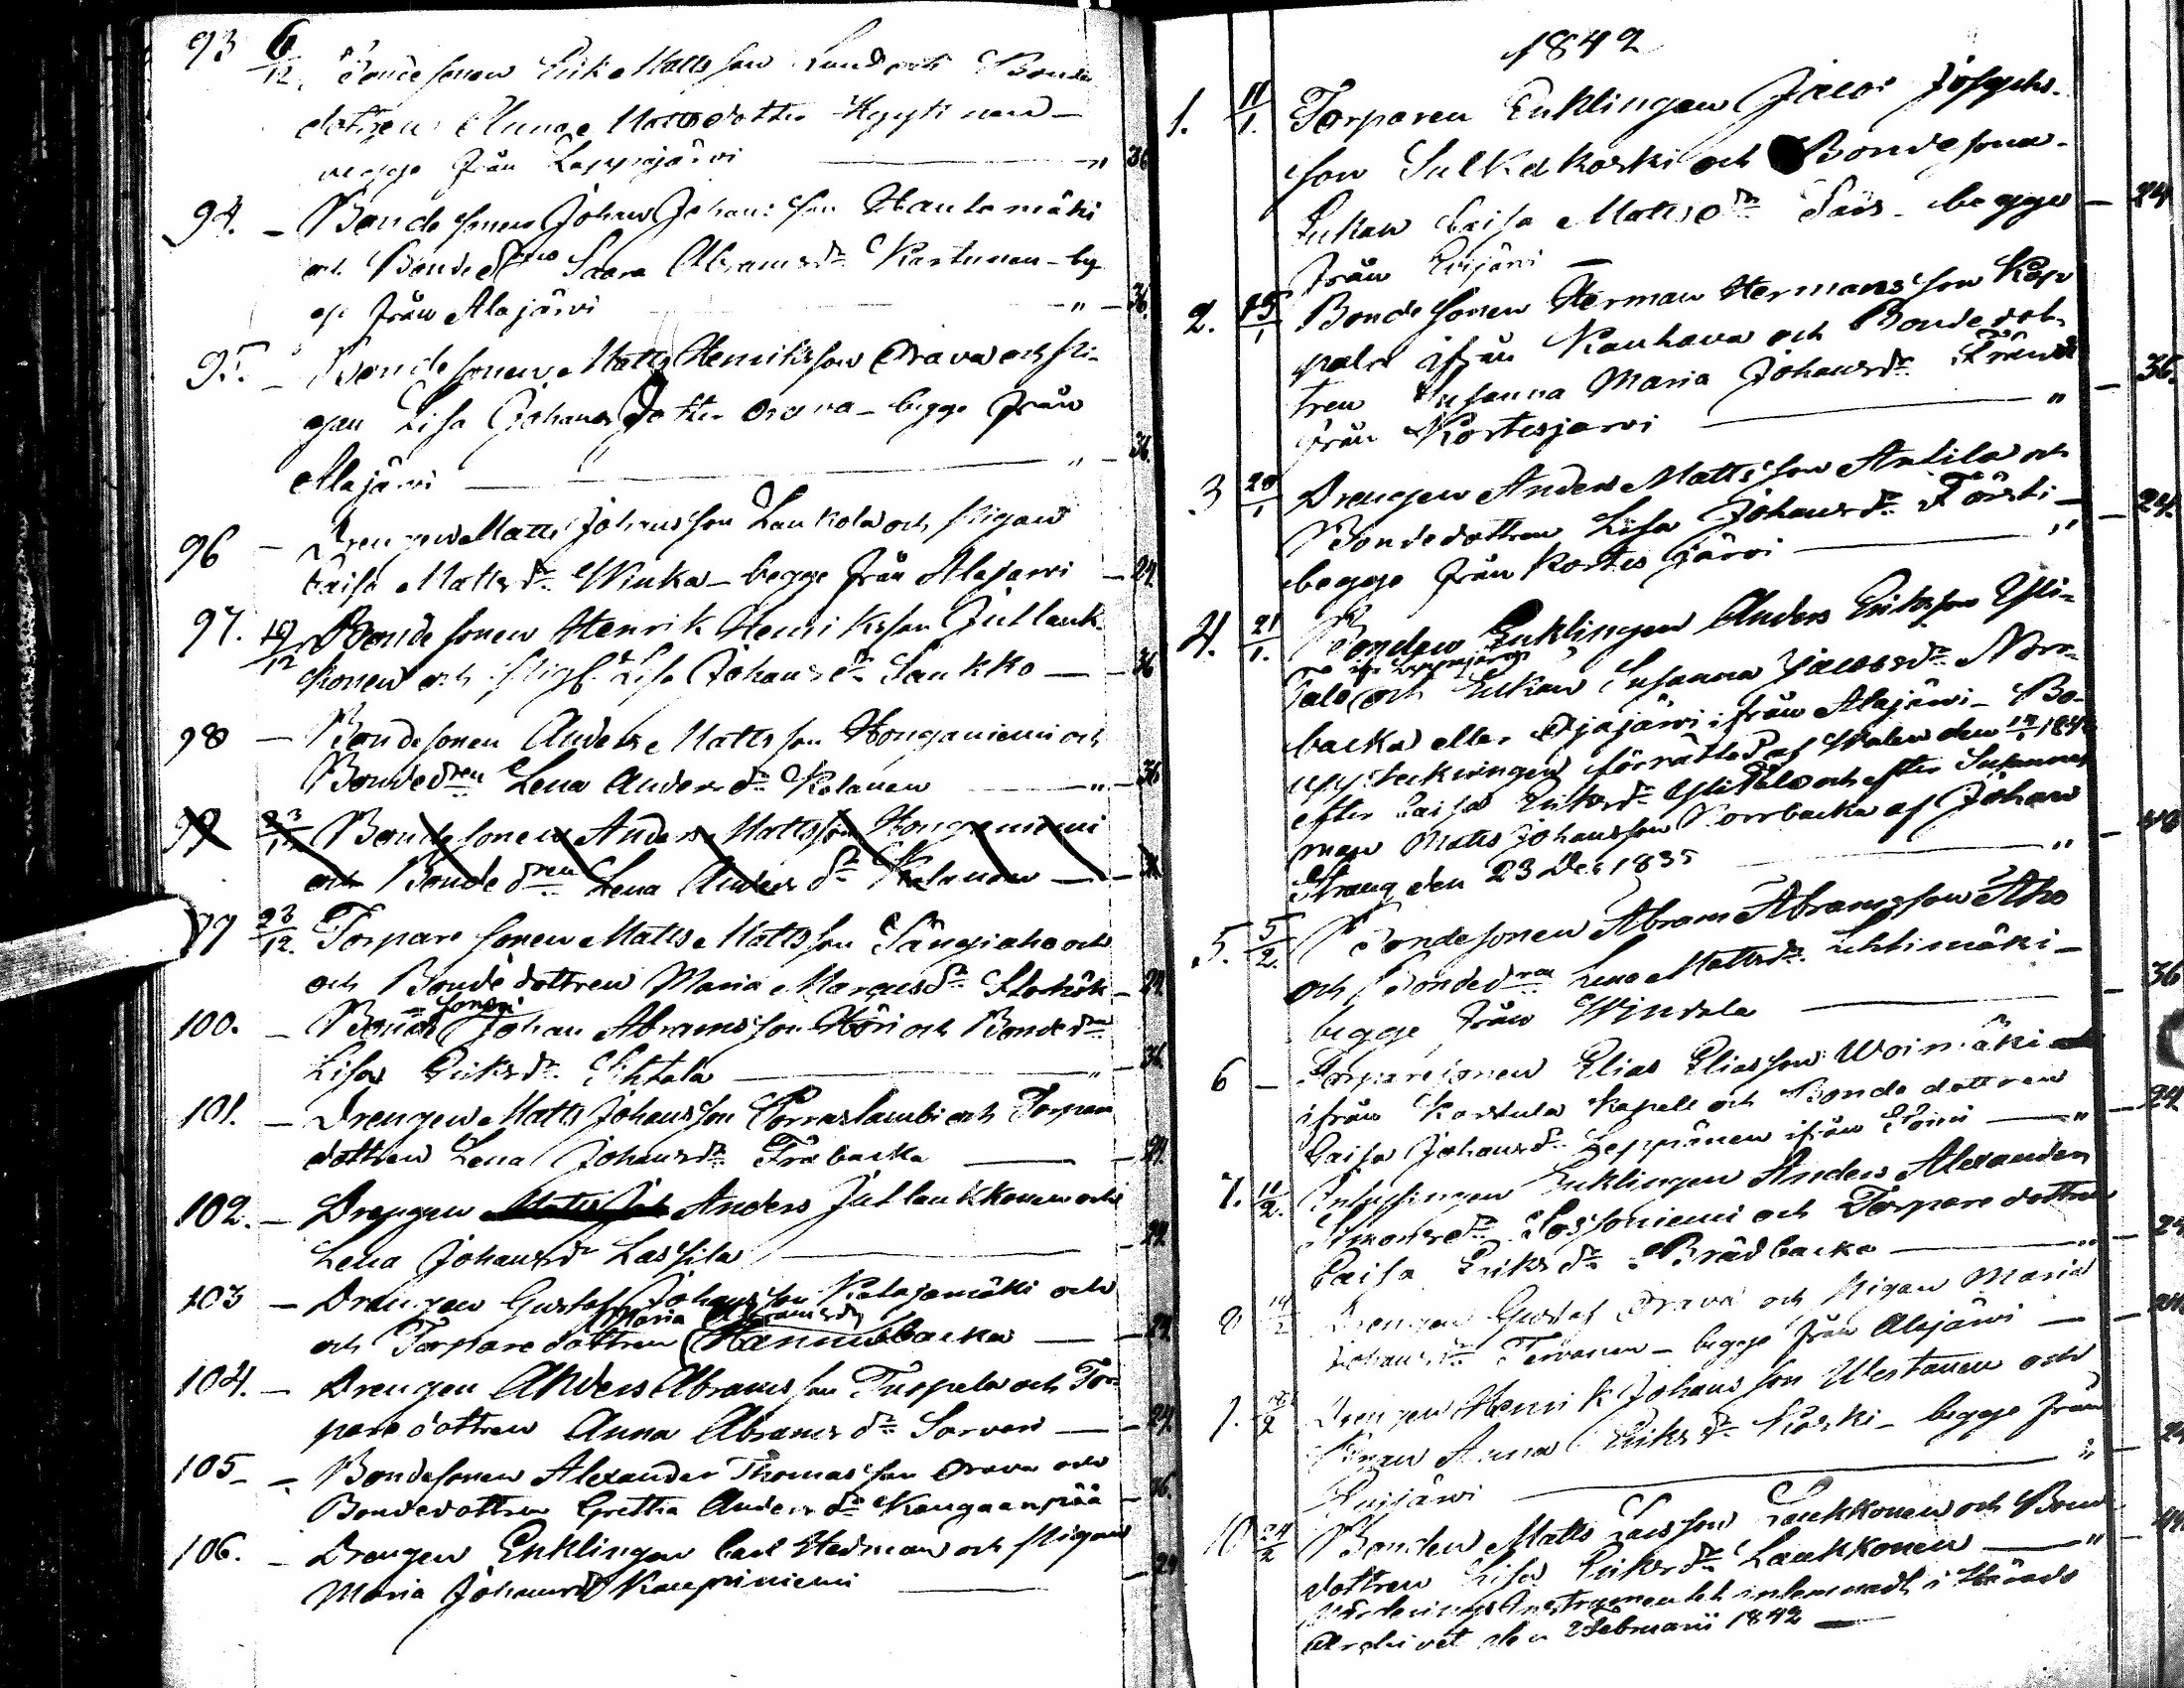 93 6/12. Bondesonen Erik Mattsson Lund och Bonde
dottren Mattsdotter Kyyti
begge från Lappajärvi — " 36
94. — Bondesonen Johan Johansson Hautamäki
och Bondedtren Saara Abramsdr Kastunen - beg
ge från Alajärvi — " — 36.
95. — Bondesonen Matts Henriksson Orava och Pi-
gan Lisa Johansdotter Orava - begge från
Alajärvi — " — 36.
96 — Drengen Matts Johansson Laukola och Pigan
Caisa Mattsdr Winka - begge från Alajärvi — 24.
97. 19/12 Bondesonen Henrik Henriksson Jutlauk-
konen och Pig. Lisa Johansdr Saukko — — 36
98 — Bondesonen Anders Mattsson Honganiemi och
Bondedren Lena Andersdr Kalanen — " — 36
99 23/12 Bondesonen Anders Mattsson Honganiemi
och Bondedren Lena Andersdr Kalanen —
99 23/12. Torparesonen Matts Mattsson Sängiaho och
och Bondedottren Maria Marcusdr Stor — 24.
100. — Bonde sonen Johan Abramsson Höri och Bondedn
Lisa Eriksdr Sihtala — " — 36.
101. — Drengen Matts Johansson Porraslambi och Torpare
dottren Lena Johansdr Träbacka — — 24.
102. — Drengen Anders Jutlaukkonen och
Lena Johansdr Lassila — — 24.
103 — Drengen Gustaf Johansson Katajamäki och
och Torparedottren Maria Abramsdr Hannusbacka — — 24.
104. — Drengen Anders Abramsson Turpela och Tor-
paredottren Anna Abramsdr Sarveri — — 24.
105 — Bondesonen Alexander Thomasson Orava och
Bondedottren Gretha Andersdr Kangaanpää — 36.
106. — Drengen Enklingen Carl Hedman och Pigan
Maria Johansdr Kauppiniemi — — 24
1842
1. 11/1. Torparen Enklingen Jacob Josephs-
son Sulkakoski och Bondesona-
Enkan Caisa Mattsdr begge — 24
från Evijärvi —
2. 15/1 Bondesonen Herman Hermansson Kop
pala ifrån Kauhava och Bondedot-
tren Susanna Maria Johansdr — 36.
från Kortesjarvi — "
3 20/1 Drengen Anders Mattsson Antila och
Bondedottren Lisa Johansdr — 24.
begge från Kortesjärvi — "
4. 21/1. Bonden Enklingen Anders Eriksson Yli-
Talo ifr Lappajärvi och Enkan Susanna Jacobsdr Norr-
backa eller Ojajärvi ifrån Alajärvi - Bo-
uppteckningen förrättad af Walen den 1842
efter Caisa Eriksdr Ylitalo och efter Susannas
man Matts Johansson Norrbacka af Johan
Strang den 23 Dec 1835 — " — 48
5. 5/2. Bondesonen Abram Abramsson Aho
och Bondedren Lena Mattsdr Lehtimäki -
begge från Windala — — 36
6 — Torparesonen Elias Eliasson Woimäki
ifrån Karstula Kapell och Bondedottren
Caisa Johansdr Leppänen ifrån Soini — " — 24
7. 11/2. Inhysingen Enklingen Anders Alexander
Simonsdr Sossoniemi och Torparedottren
Caisa Eriksdr Brädbacka — " — 24
8 14/2 Drengen Gustaf Orava och Pigan Maria
Johansdr Tervonen - begge från Alajärvi — — 24
9. /2 Drengen Henrik Johansson Westanen och
Pigan Anna Eriksdr Koski - begge från
Evijärvi — " — 24
10 24/2 Bonden Matts Larsson Laukkonen och Bonde
dottren Lisa Eriksdr Laukkonen — " — 48
Värderings Instrumentet inlemnadt i Härads
Archivet den 2 Februarii 1842 —